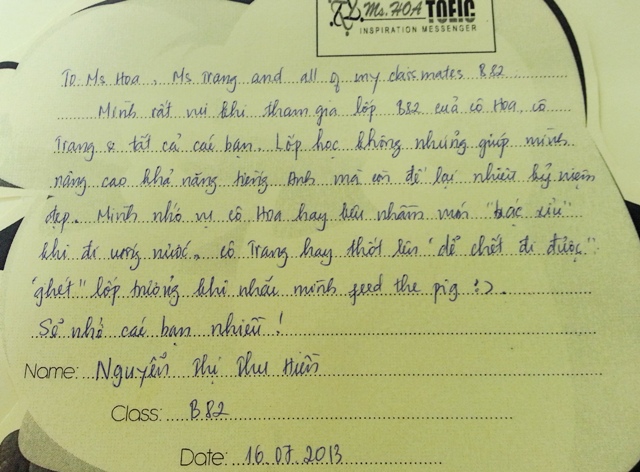 Ms. HOA TOEIC
INSPIRATION MESSENGER
To Ms Hoa, Ms Trang and all of my classmates B82
Mình rất vui khi tham gia lớp B82 của cô Hoa, cô
Trang & tất cả các bạn. Lớp học không những giúp mình
nâng cao khả năng tiếng Anh mà còn để lại nhiều kỷ niệm
đẹp. Mình nhớ vụ cô Hoa hay kêu nhầm món "bạc xỉu"
khi đi uống nước. cô Trang hay thốt lên "dễ chết đi được".
"ghét" lớp trưởng khi nhắc mình feed the pig :).
Sẽ nhớ các bạn nhiều!
Name: Nguyễn Thị Thu Hiền
Class: B82
Date: 16.07.2013